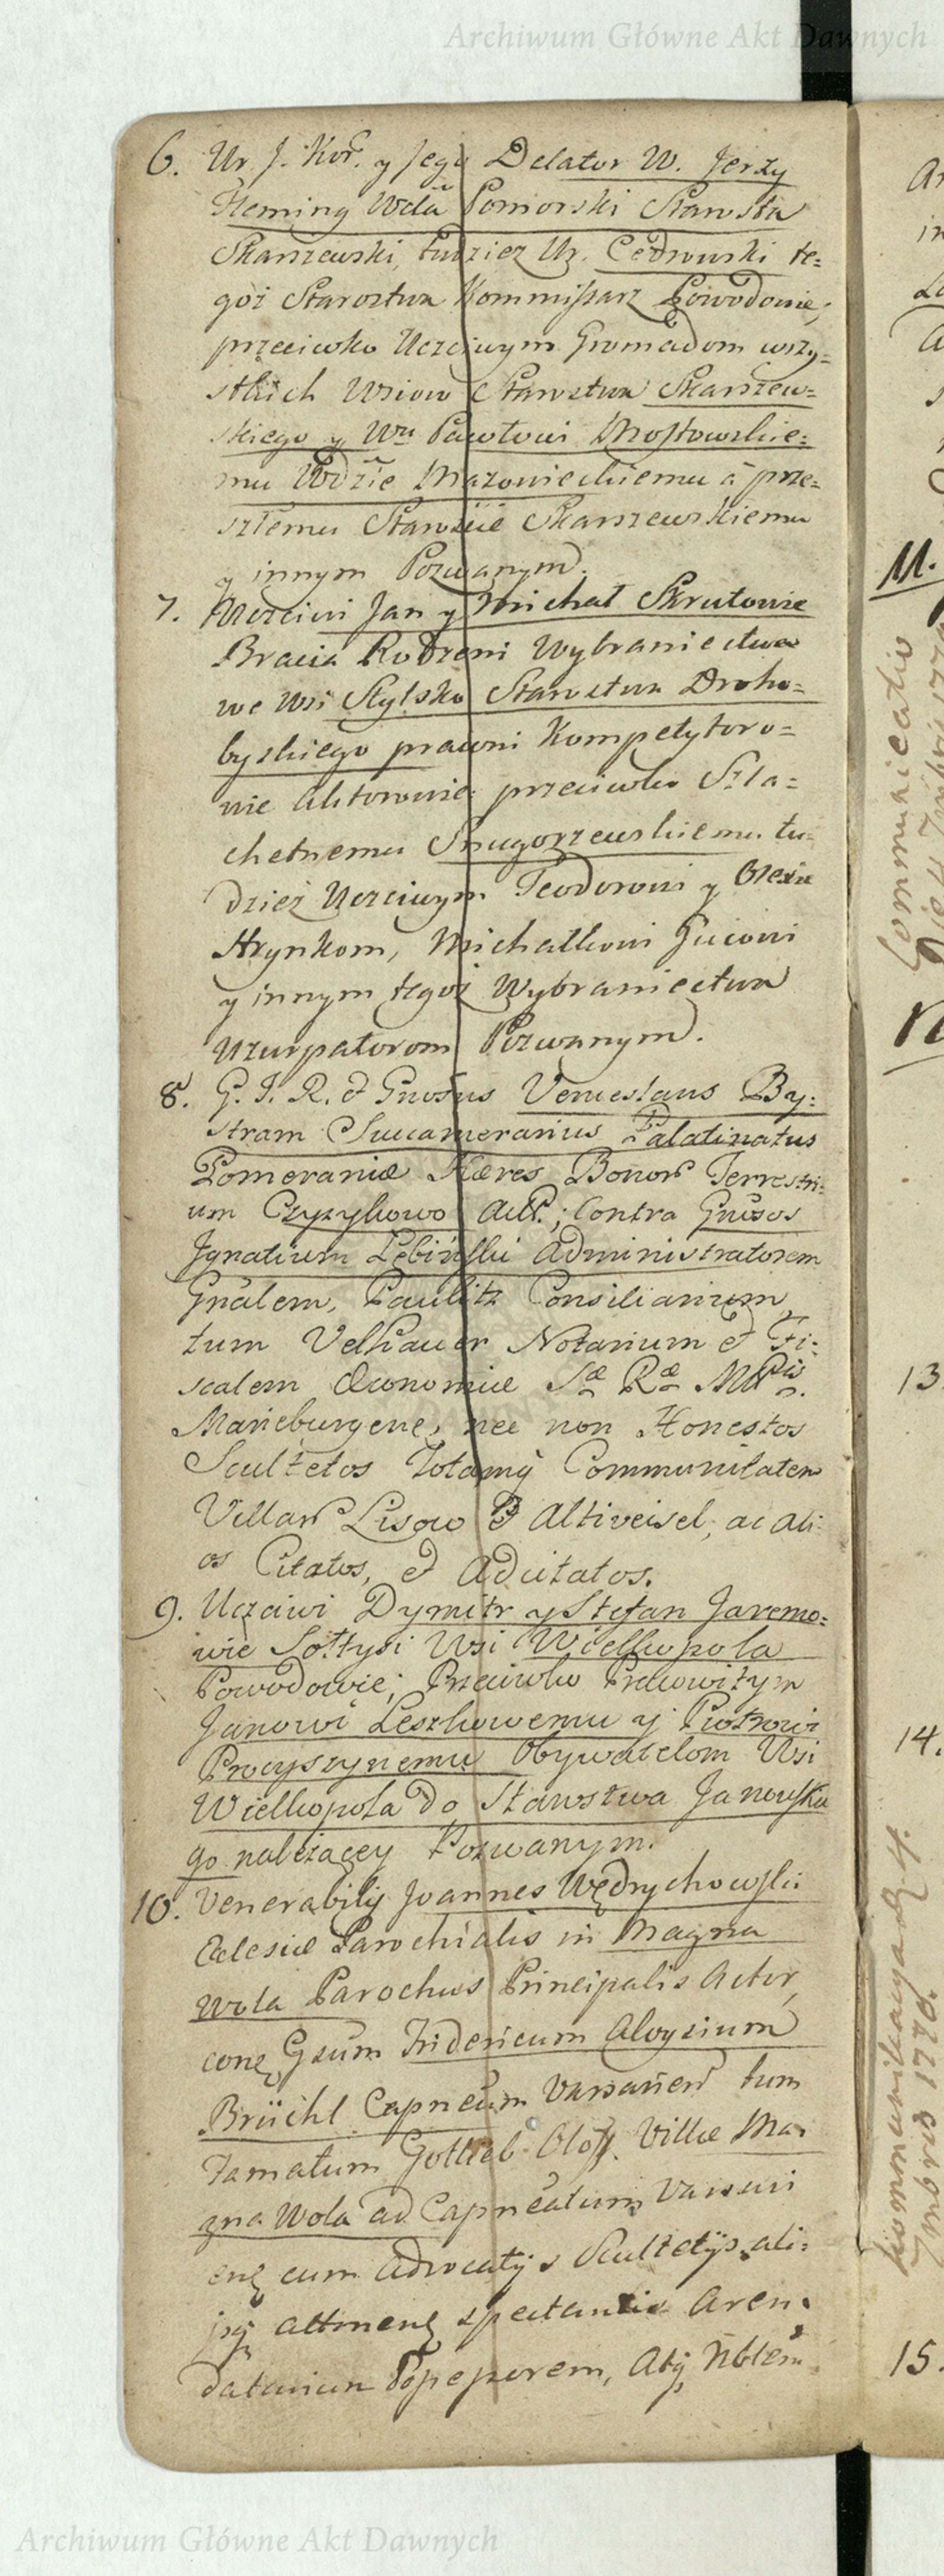 Archiwum Główne Akt Dawnych
6. Ur. J. Kor. y Jego Delator W. Jerzy
Fleming Wda Pomorski Starosta
Skarszewski, tudziez Ur. Cedrowski te=
goż Starostwa Kommissarz Powodowie,
przeciwko Uczciwym Gromadom wszy=
stkich Wsiow Starostwa Skarszew=
skiego y Wu Pawłowi Mostowskie=
mu Wdzie Mazowieckiemu á prze=
szłemu Staroście Skarszewskiemu
y innym Pozwanym.
7. Uczciwi Jan y Michał Skrutowie
Bracia Rodzeni Wybraniectwa
we Wsi Stylsko Starostwa Droho=
byskiego prawni Kompetytoro=
wie Aktorowie przeciwko Szla=
chetnemu Skugorzewskiemu tu=
dzież Uczciwym Teodorowi y
Hrynkom, Michałkowi Juiowi
y innym tegoż Wybraniectwa
Uzurpatorom Pozwanym.
8. G. I. R. et Gnosus Venceslaus By=
stram Succamerarius Palatinatus
Pomeraniæ Hæres Bonor Terrestri=
um Czyzykowo Act.; Contra Gnosos
Ignatium Lebiński Administratorem
Gnalem, Paulitz Consiliarium,
tum Velhauer Notarium et Fi=
scalem Œconomiæ Sæ Ræ Mttis.
Marieburgene, nec non Honestos
Scultetos Totamq Communitatem
Villar Lisowo et Altiveisel, ac ali=
os Citatos, et Adcitatos.
9. Uczciwi Dymitr y Stefan Jaremo=
wie Sołtysi Wsi Wielkopola
Powodowie; Przeciwko Pracowitym
Janowi Leszkowemu y Piotrowi
Procyszynemu Obywatelom Wsi
Wielkopola do Starostwa Janowskie
go należącey Pozwanym.
10. Venerabilis Joannes Wędrychowski
Eclesiæ Parochialis in Magna
Wola Parochus Principalis Actor,
conę Gsum Fridericum Aloysium
Brüchl Capneum Varsavien tum
Famatum Gottlieb Villæ Ma=
gna Wola ad Capneatum Varsavi
enę cum Advocatijs Scultetijs ali=
jsq attinenę spectantis Aren=
datarium Atq Nblem
11.
Communicatio
13
14.
Kommunikacya
7mbris 1770.
15.
Archiwum Główne Akt Dawnych